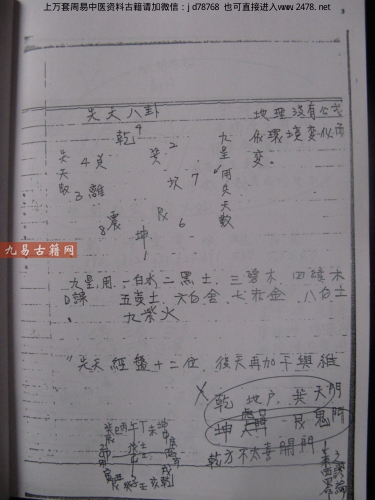 上万套周易中医资料古籍请加微信：jd78768 也可直接进入www.2478.net
先天八卦
地理没有公式
依環境变化而
变。
乾9
4兑
巽2
3離
坎7
8震
艮6
坤1
先天數
九星用先天數
九星用 一白水 二黑土 三碧木 四綠木
五黄土 六白金 七赤金 八白土
九紫火
先天經盤十二位 後天再加干與維
乾 地户 巽天門
坤 艮鬼門
乾方不太喜開門
九易古籍网